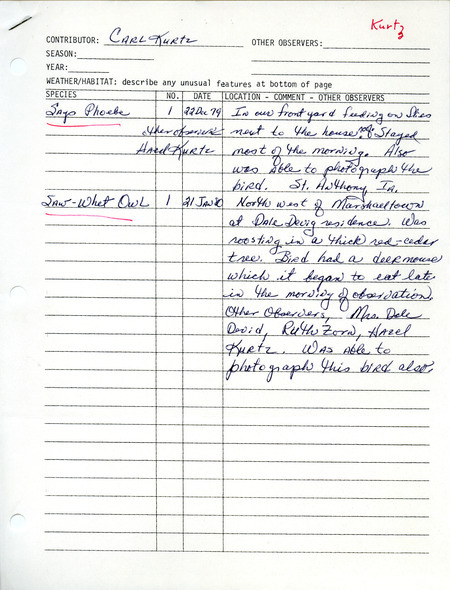 Kurtz
CONTRIBUTOR: CARL KURTZ OTHER OBSERVERS:
SEASON:
YEAR:
WEATHER/HABITAT: describe any unusual features at bottom of page
SPECIES NO. DATE LOCATION - COMMENT - OTHER OBSERVERS
Says Phoebe 1 22 Dec 79 In our front yard feeding on flies
other observer next to the house. Stayed
Hazel Kurtz most of the morning. Also
was able to photograph the
bird. St. Anthony, Ia.
Saw-Whet Owl 1 21 Jan 80 North west of Marshalltown
at Dale Devig residence. Was
roosting in a thick red-cedar
tree. Bird had a deermouse
which it began to eat late
in the morning of observation.
Other Observers, Mrs. Dale
David, Ruth Zorn, Hazel
Kurtz. Was able to
photograph this bird also.